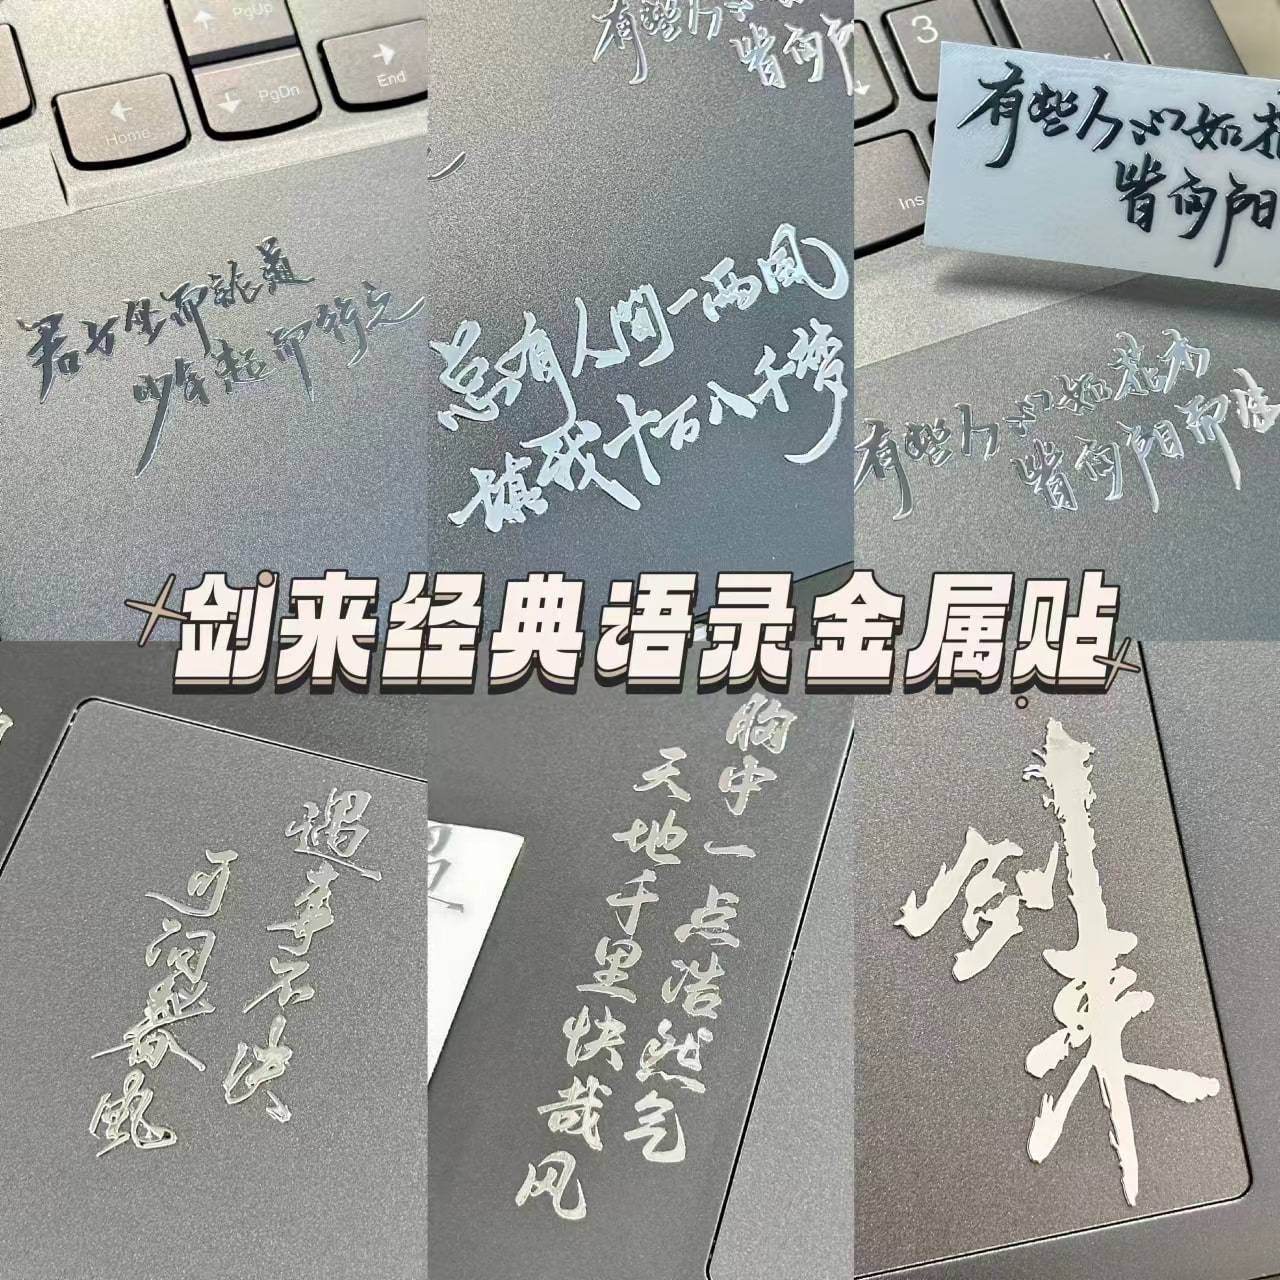 PgUp
Home
PgDn
End
君子坐而论道
少年起而行之
有些人
皆向阳
总有人间一两風
填我十万八千梦
3
Ins
有些人心如花
皆向阳
有些人心如花木
皆向阳而
剑来经典语录金属贴
遇事不决
可问春風
胸中一点浩然气
天地千里快哉风
剑来